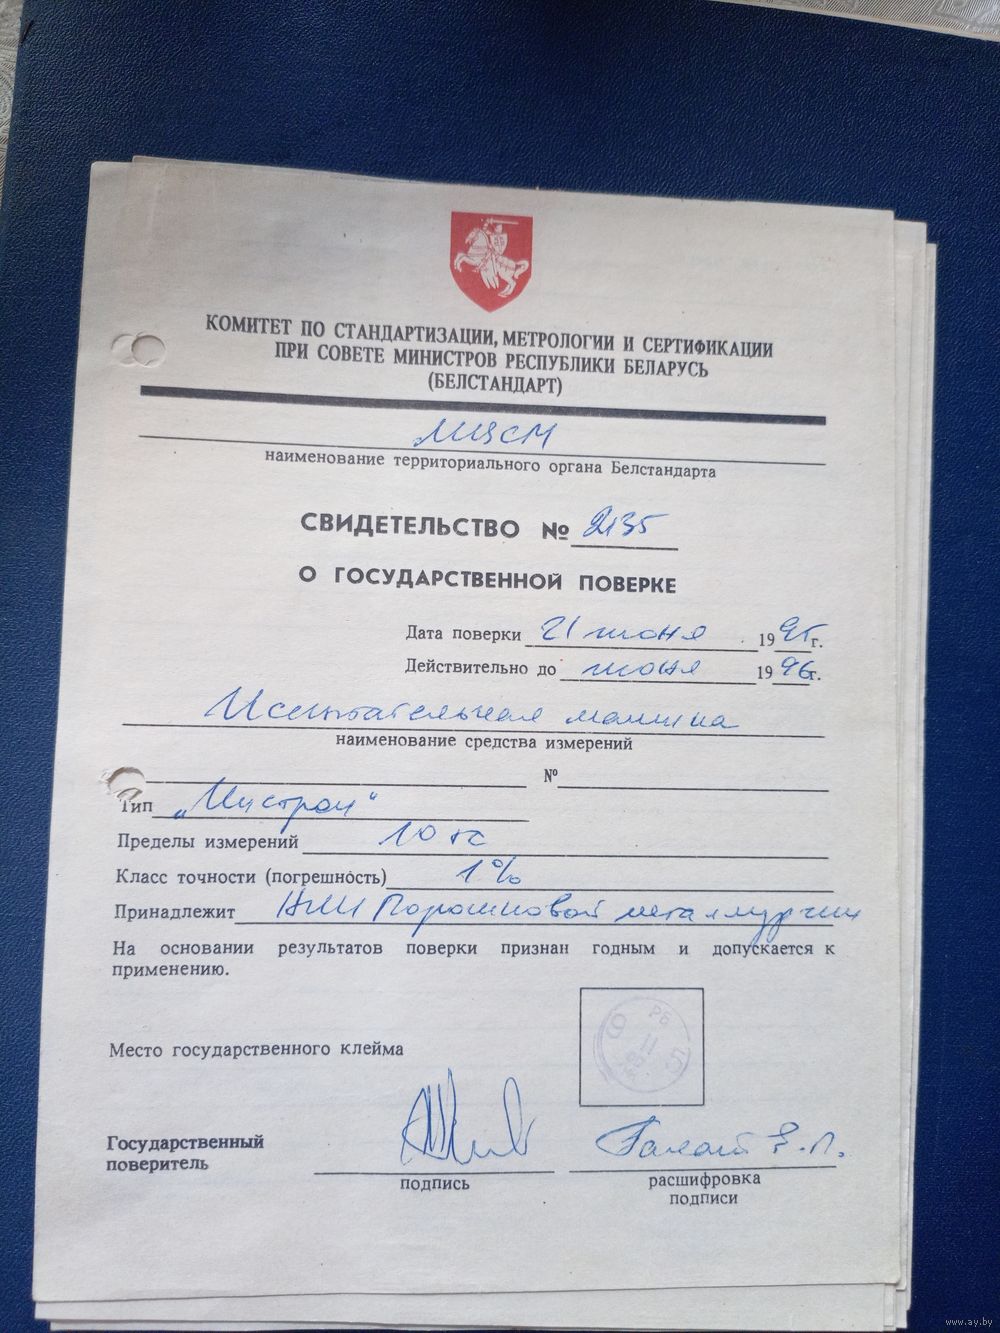 КОМИТЕТ ПО СТАНДАРТИЗАЦИИ, МЕТРОЛОГИИ И СЕРТИФИКАЦИИ
ПРИ СОВЕТЕ МИНИСТРОВ РЕСПУБЛИКИ БЕЛАРУСЬ
(БЕЛСТАНДАРТ)
МЦСМ
наименование территориального органа Белстандарта
СВИДЕТЕЛЬСТВО № 2135
О ГОСУДАРСТВЕННОЙ ПОВЕРКЕ
Дата поверки 21 июня 1995г.
Действительно до июня 1996г.
Испытательная машина
наименование средства измерений
№
Тип „Инстрон"
Пределы измерений 10 тс
Класс точности (погрешность) 1%
Принадлежит НИИ Порошковой металлургии
На основании результатов поверки признан годным и допускается к
применению.
РБ
Место государственного клейма
Государственный
поверитель
подпись
расшифровка
подписи
www.ay.by